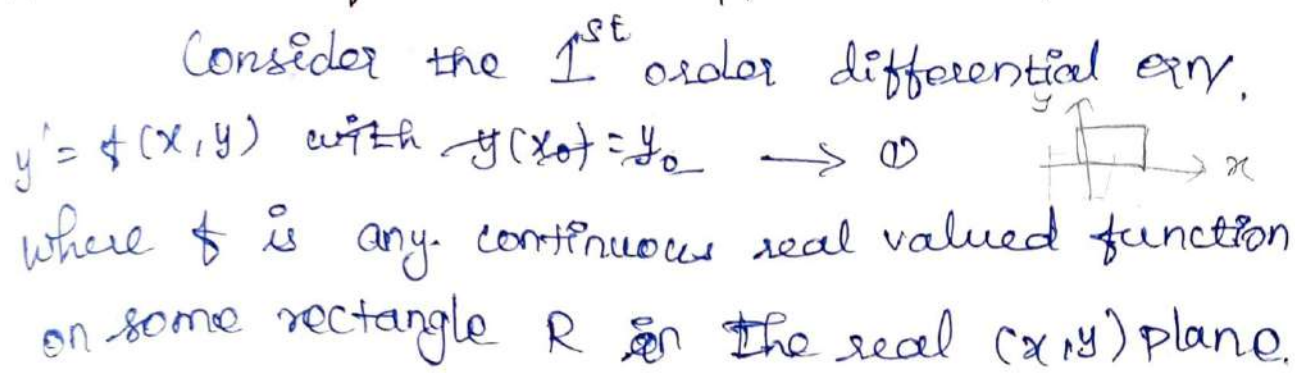 Consider the 1st order differential eqn.
y' = f(x,y) with y(x0) = y0 → ①
y
x
where f is any continuous real valued function
on some rectangle R in the real (x,y) plane.